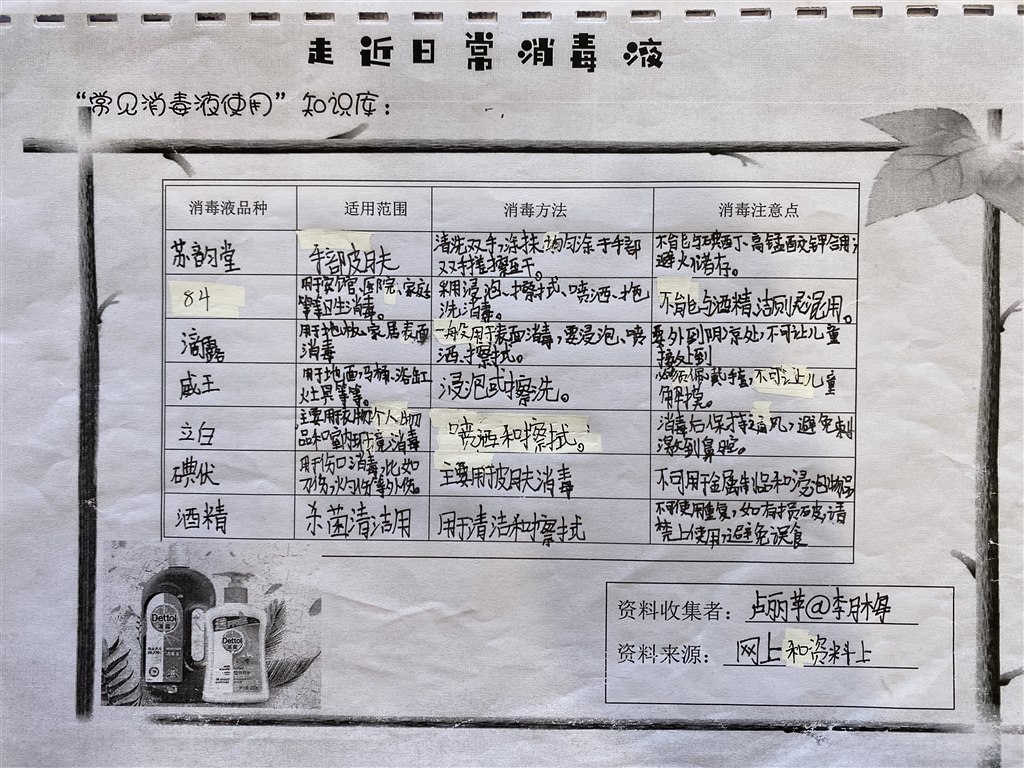 走近日常消毒液
“常见消毒液使用”知识库：
消毒液品种 适用范围 消毒方法 消毒注意点
苏韵堂 手部皮肤 清洗双手，涂抹均匀涂于手部
双手搓擦至干。 不能与碘西丁、高锰酸钾合用，
避火储存。
84 用于宾馆、医院、家庭
等等卫生消毒。 采用浸泡、擦拭、喷洒、拖
洗消毒。 不能与酒精、洁厕灵混用。
滴露 用于地板、家居表面
消毒 一般用于表面消毒，要浸泡、喷
洒、擦拭。 要外到阴凉处，不可让儿童
接处到
威王 用于地面，马桶，浴缸
灶具等等。 浸泡或擦洗。 必须佩戴手套，不可让儿童
触摸。
立白 主要用衣物个人物
品和室内环境消毒 喷洒和擦拭。 消毒后保持通风，避免刺
激到鼻腔。
碘伏 用伤口消毒，比如
刀伤，火灼伤等外伤。 主要用皮肤消毒 不可用金属制品和浸泡物品
酒精 杀菌清洁用 用于清洁和擦拭 不可使用重复，如有损破，请
禁止使用，避免误食
Dettol
滴露
Dettol
滴露
资料收集者： 卢丽苹@李月梅
资料来源： 网上和资料上